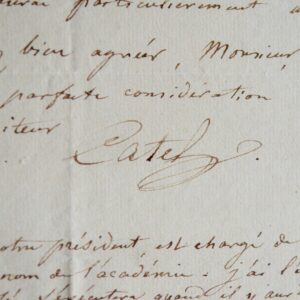 particulièrement
bien agréer, Monsieur
parfaite considération
iteur
Catel
otre président est chargé de
nom de l'académie. j'ai l'
quand il y au